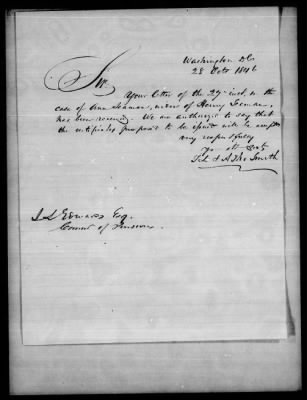 Washington D.C.
28 Octr 1846
Sir.
Your letter of the 27th inst. in the
case of Ann Seaman, widow of Henry Seaman,
has been received. We are authorized to say that
the certificate proposed to be issued will be
very respectfully
Yr obt Svts
Smith
J L Edwards Esq.
Commr of Pensions